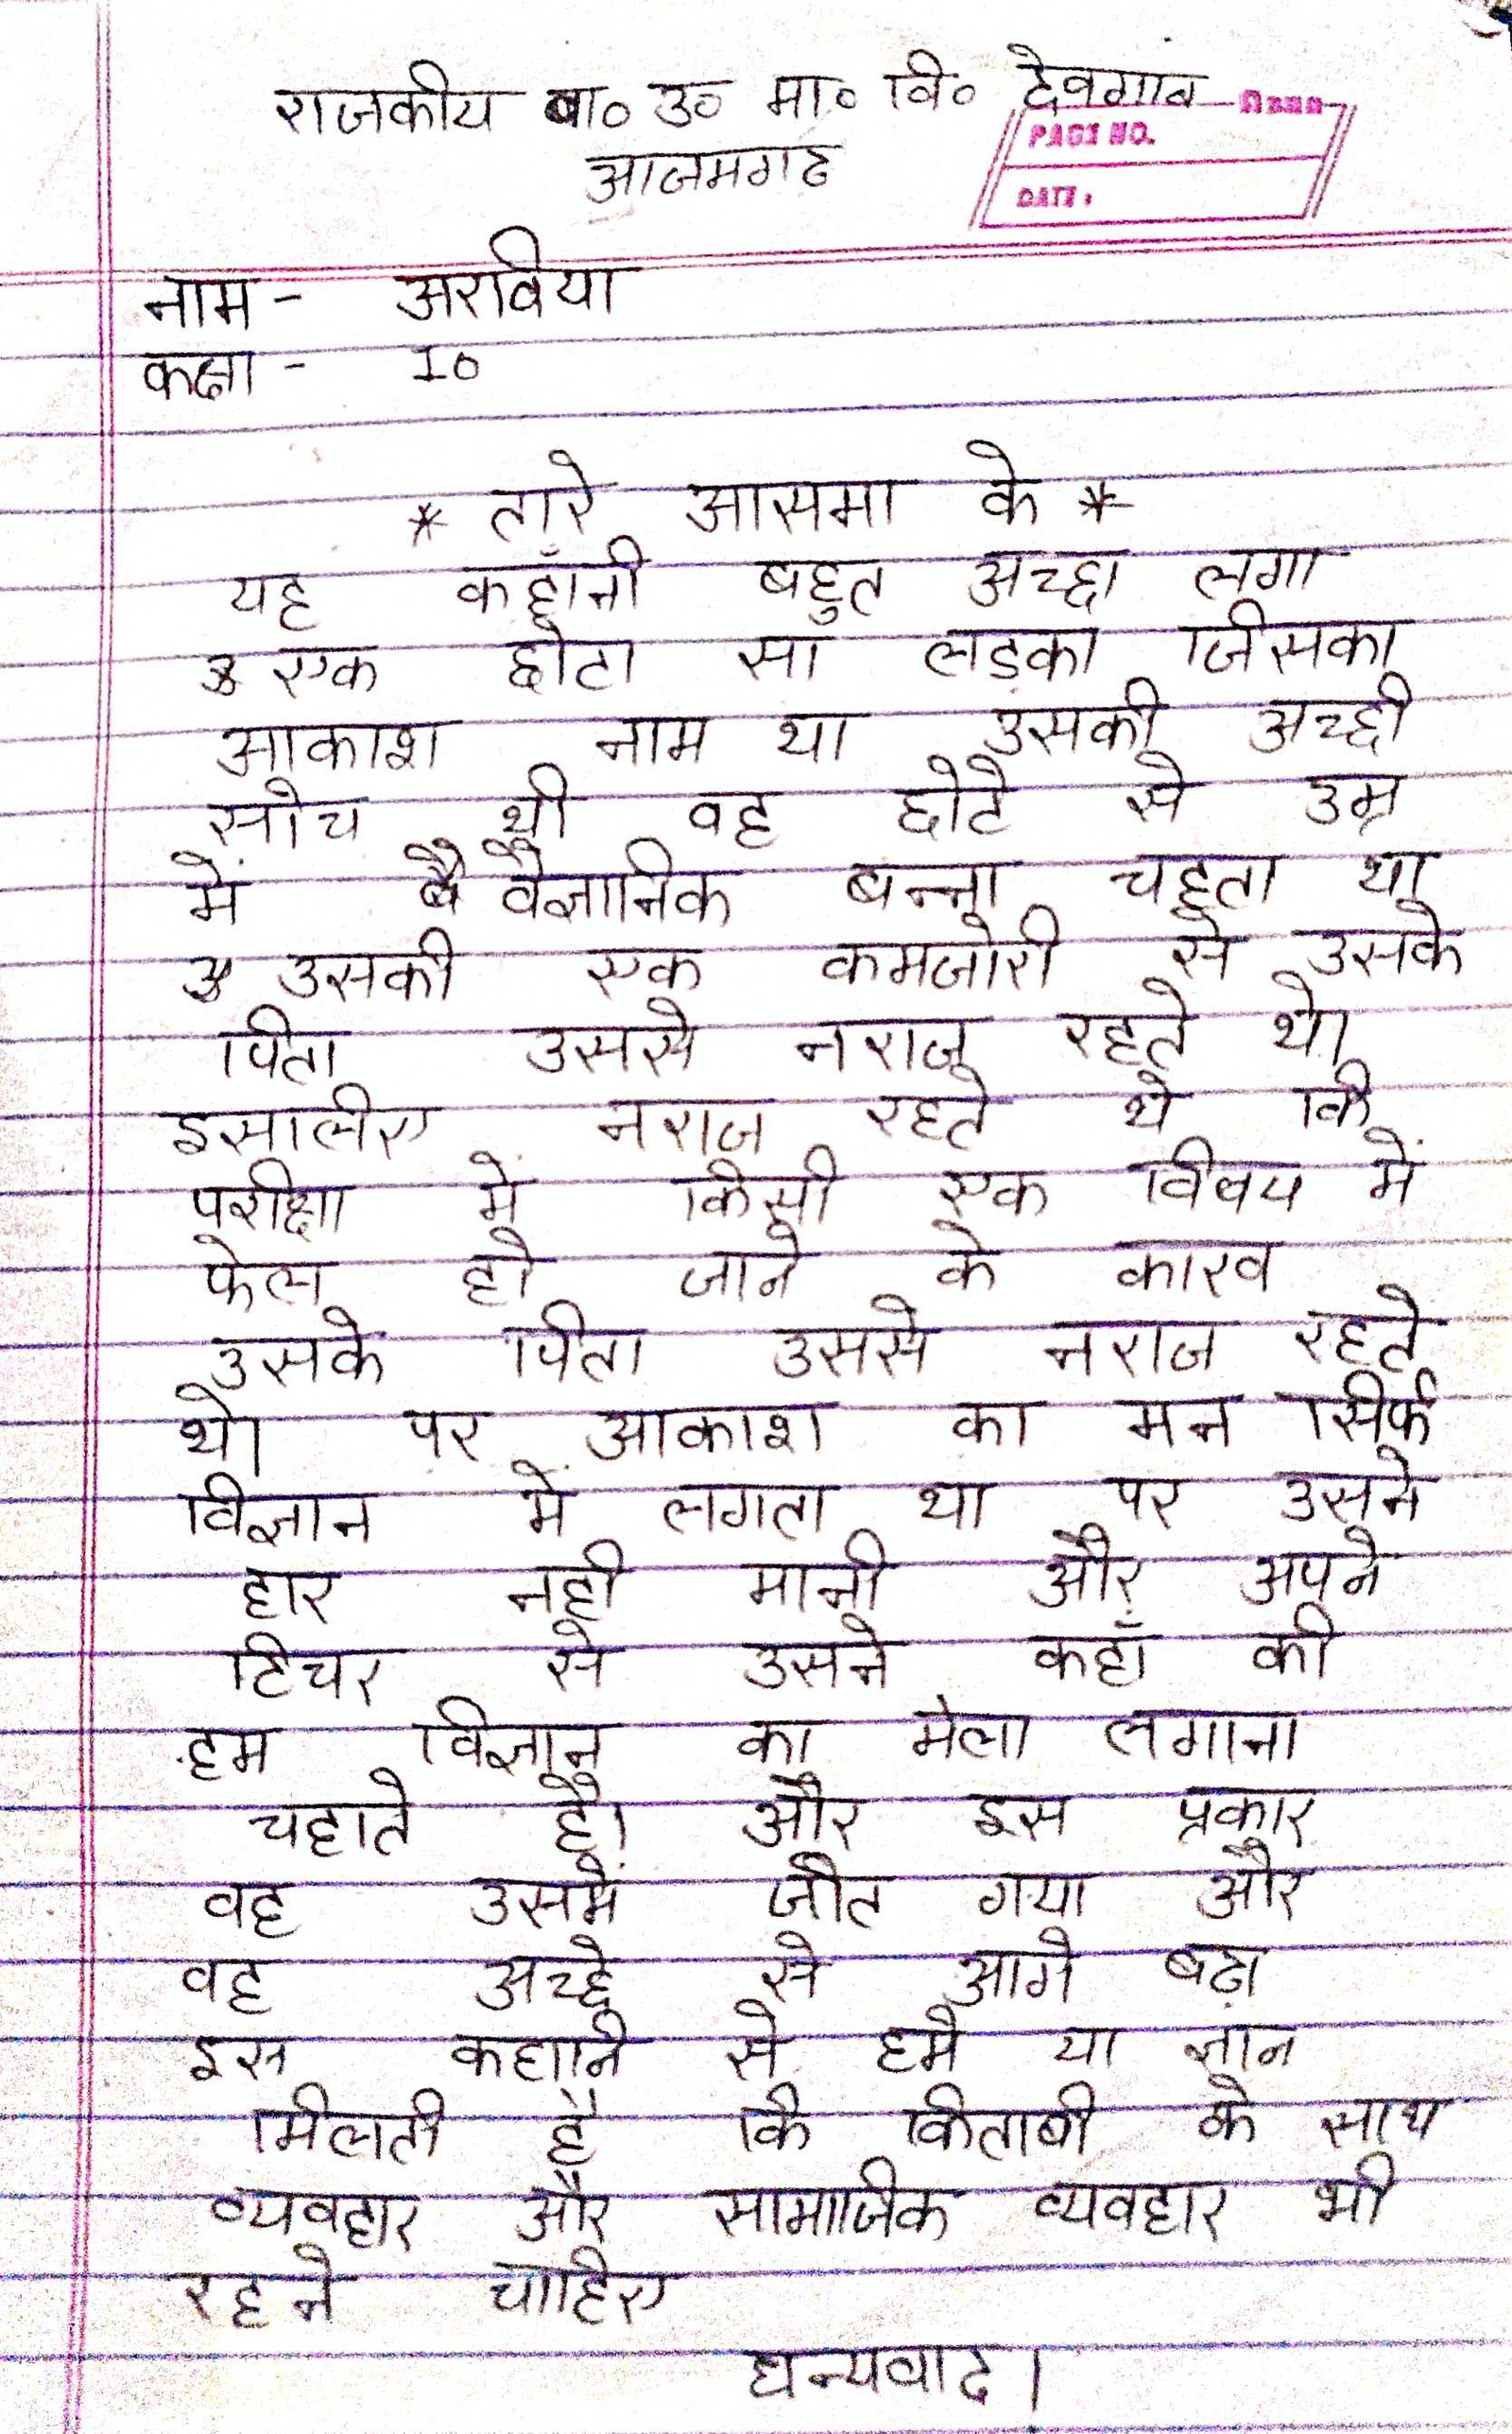 राजकीय बा० उ० मा० वि० देवगाव
आजमगढ
PAGE NO.
DATE:
नाम - अरविया
कक्षा - 10
* तारे आसमा के *
यह कहाँनी बहुत अच्छा लगा
एक छोटा सा लड़का जिसका
आकाश नाम था उसकी अच्छी
सोच थी वह छोटे से उम्र
में वैज्ञानिक बन्ना चहता था
उसकी एक कमजोरी से उसके
पिता उससे नराज रहते थे।
इसालिए नराज रहते थे कि
परीक्षा में किसी एक विवय में
फेल हो जाने के कारव
उसके पिता उससे नराज रहते
थे। पर आकाश का मन सिर्फ
विज्ञान में लगता था पर उसने
हार नही मानी और अपने
टिचर से उसने कहाँ की
हम विज्ञान का मेला लगाना
चहाते है। और इस प्रकार
वह उसमें जीत गया और
वह अच्छे से आगे बढ़ा
इस कहानि से हमे या ज्ञान
मिलती है कि किताबी के साथ
व्यवहार और सामाजिक व्यवहार भी
रहने चाहिए
धन्यवाद।